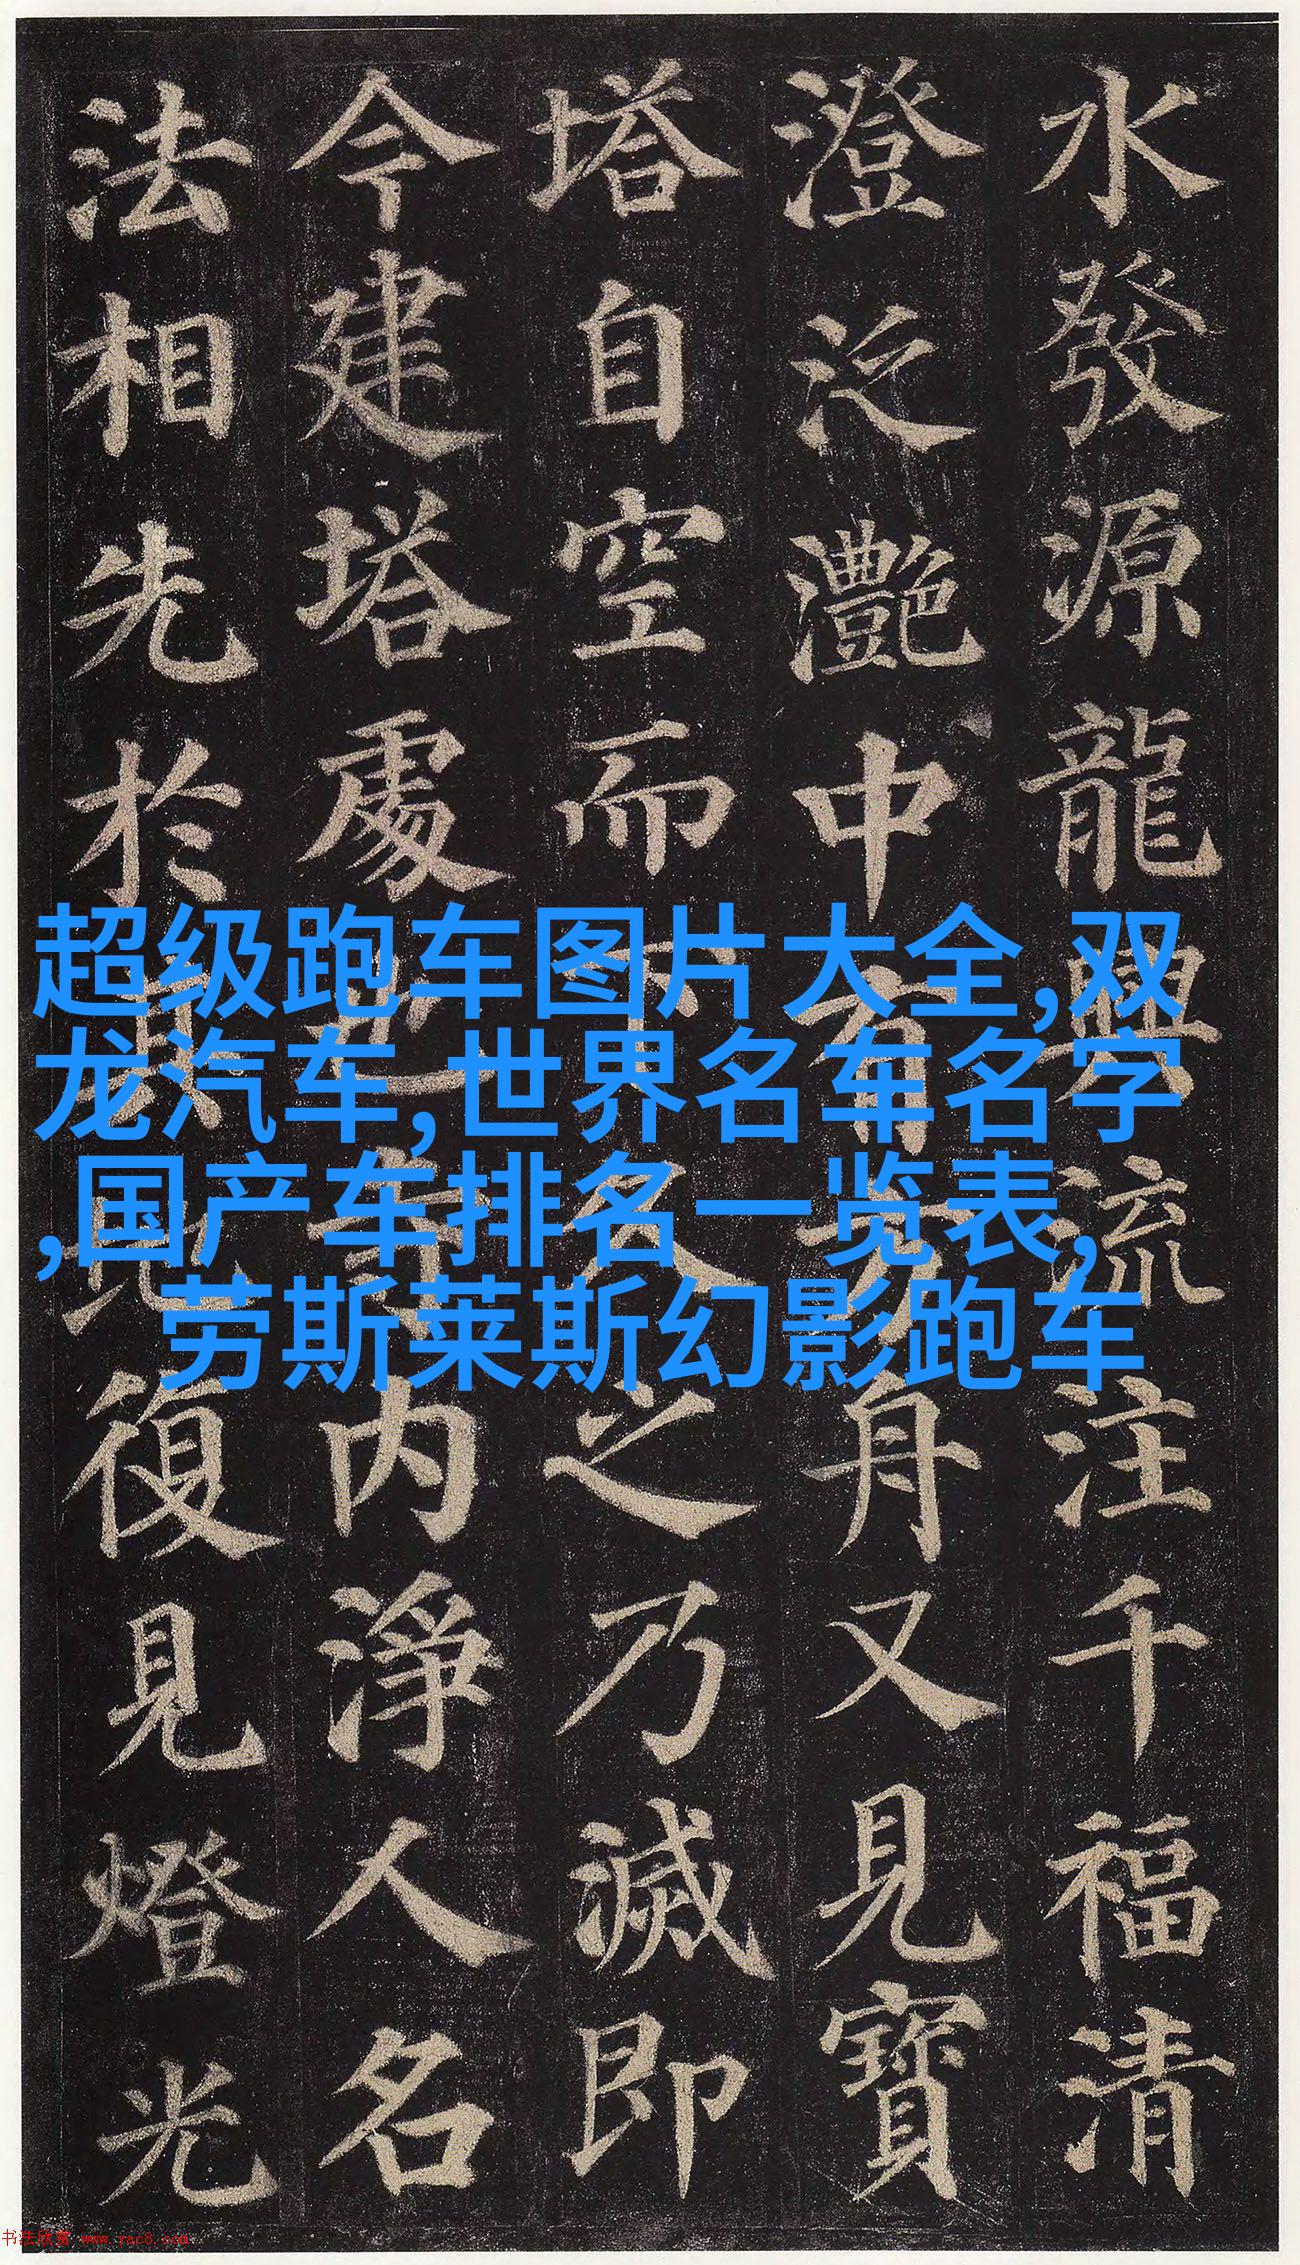 水發源龍興流注千福清
澄泛灩中有方舟又見寶
塔自空而下久之乃滅即
今建塔處也寺内淨人名
法相先於其地復見燈光
超级跑车图片大全,双
龙汽车,世界名车名字
,国产车排名一览表,
劳斯莱斯幻影跑车
书法欣赏 www.yac8.com